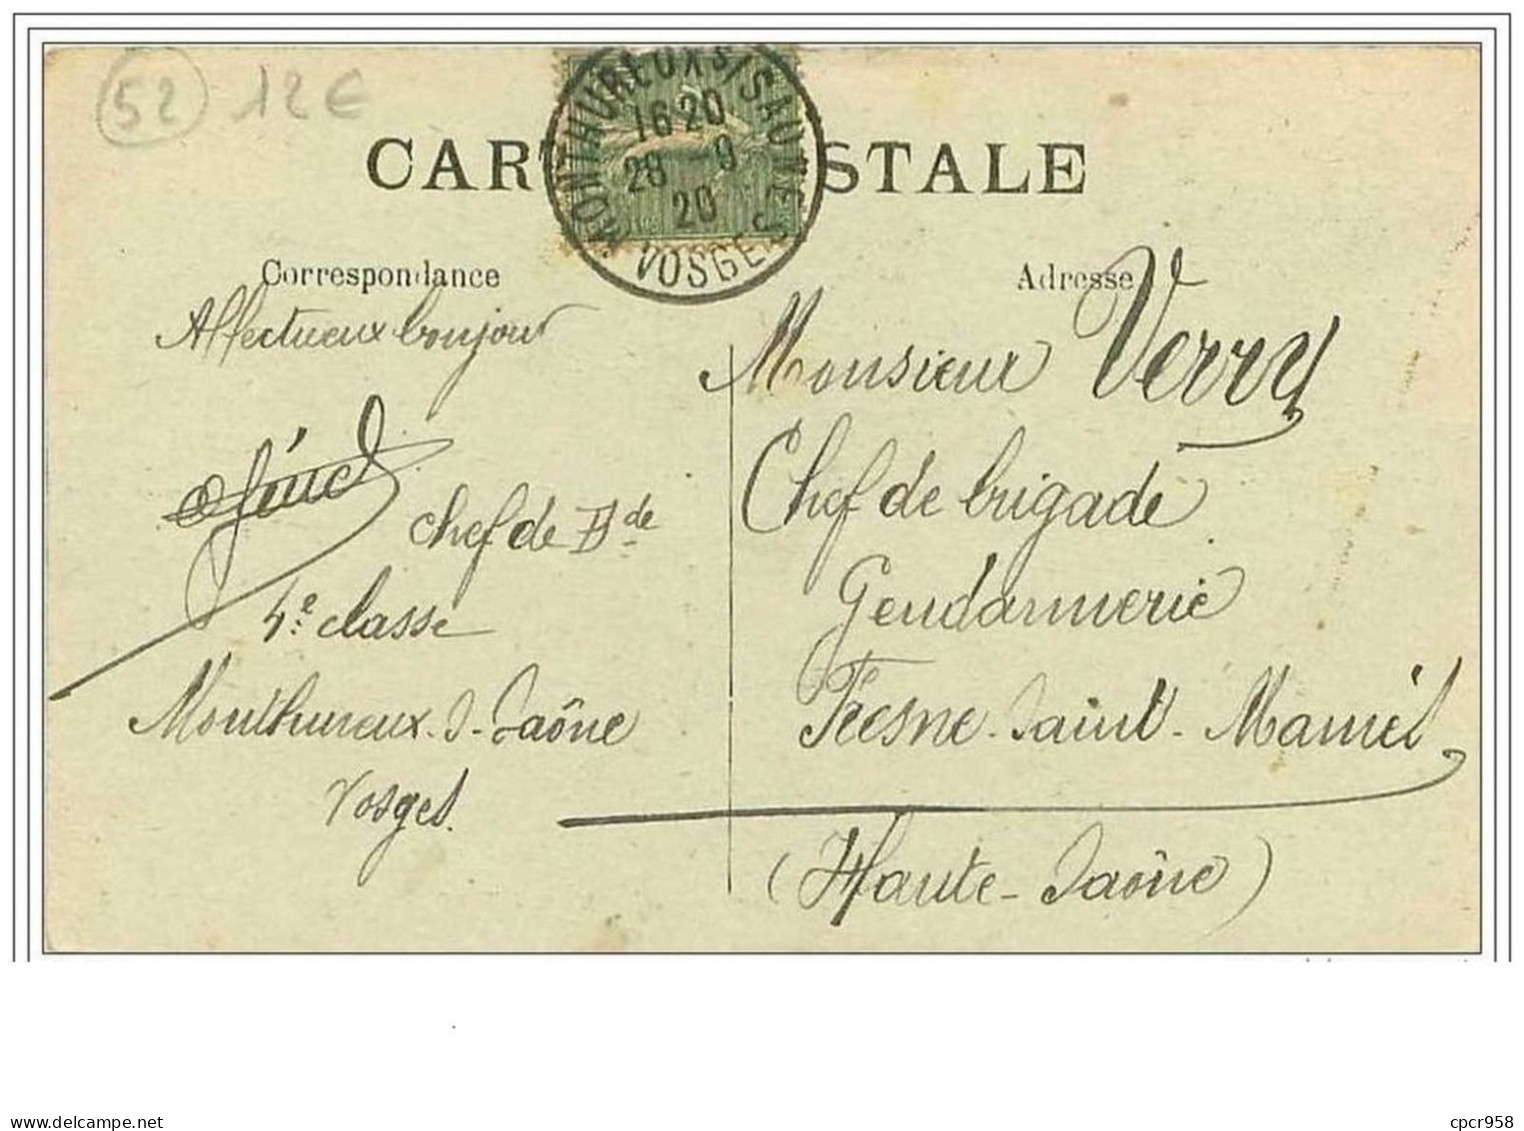 52 12€
CARTE POSTALE
MONTHUREUX S/SAONE
16 20
28 9
20
VOSGES
Correspondance
Adresse
Affectueux bonjour
chef de Bde
4e classe
Monthureux-s-Saône
Vosges.
Monsieur Verry
Chef de brigade
Gendarmerie
Fresne-Saint-Mamès
(Haute-Saône)
cpcr958